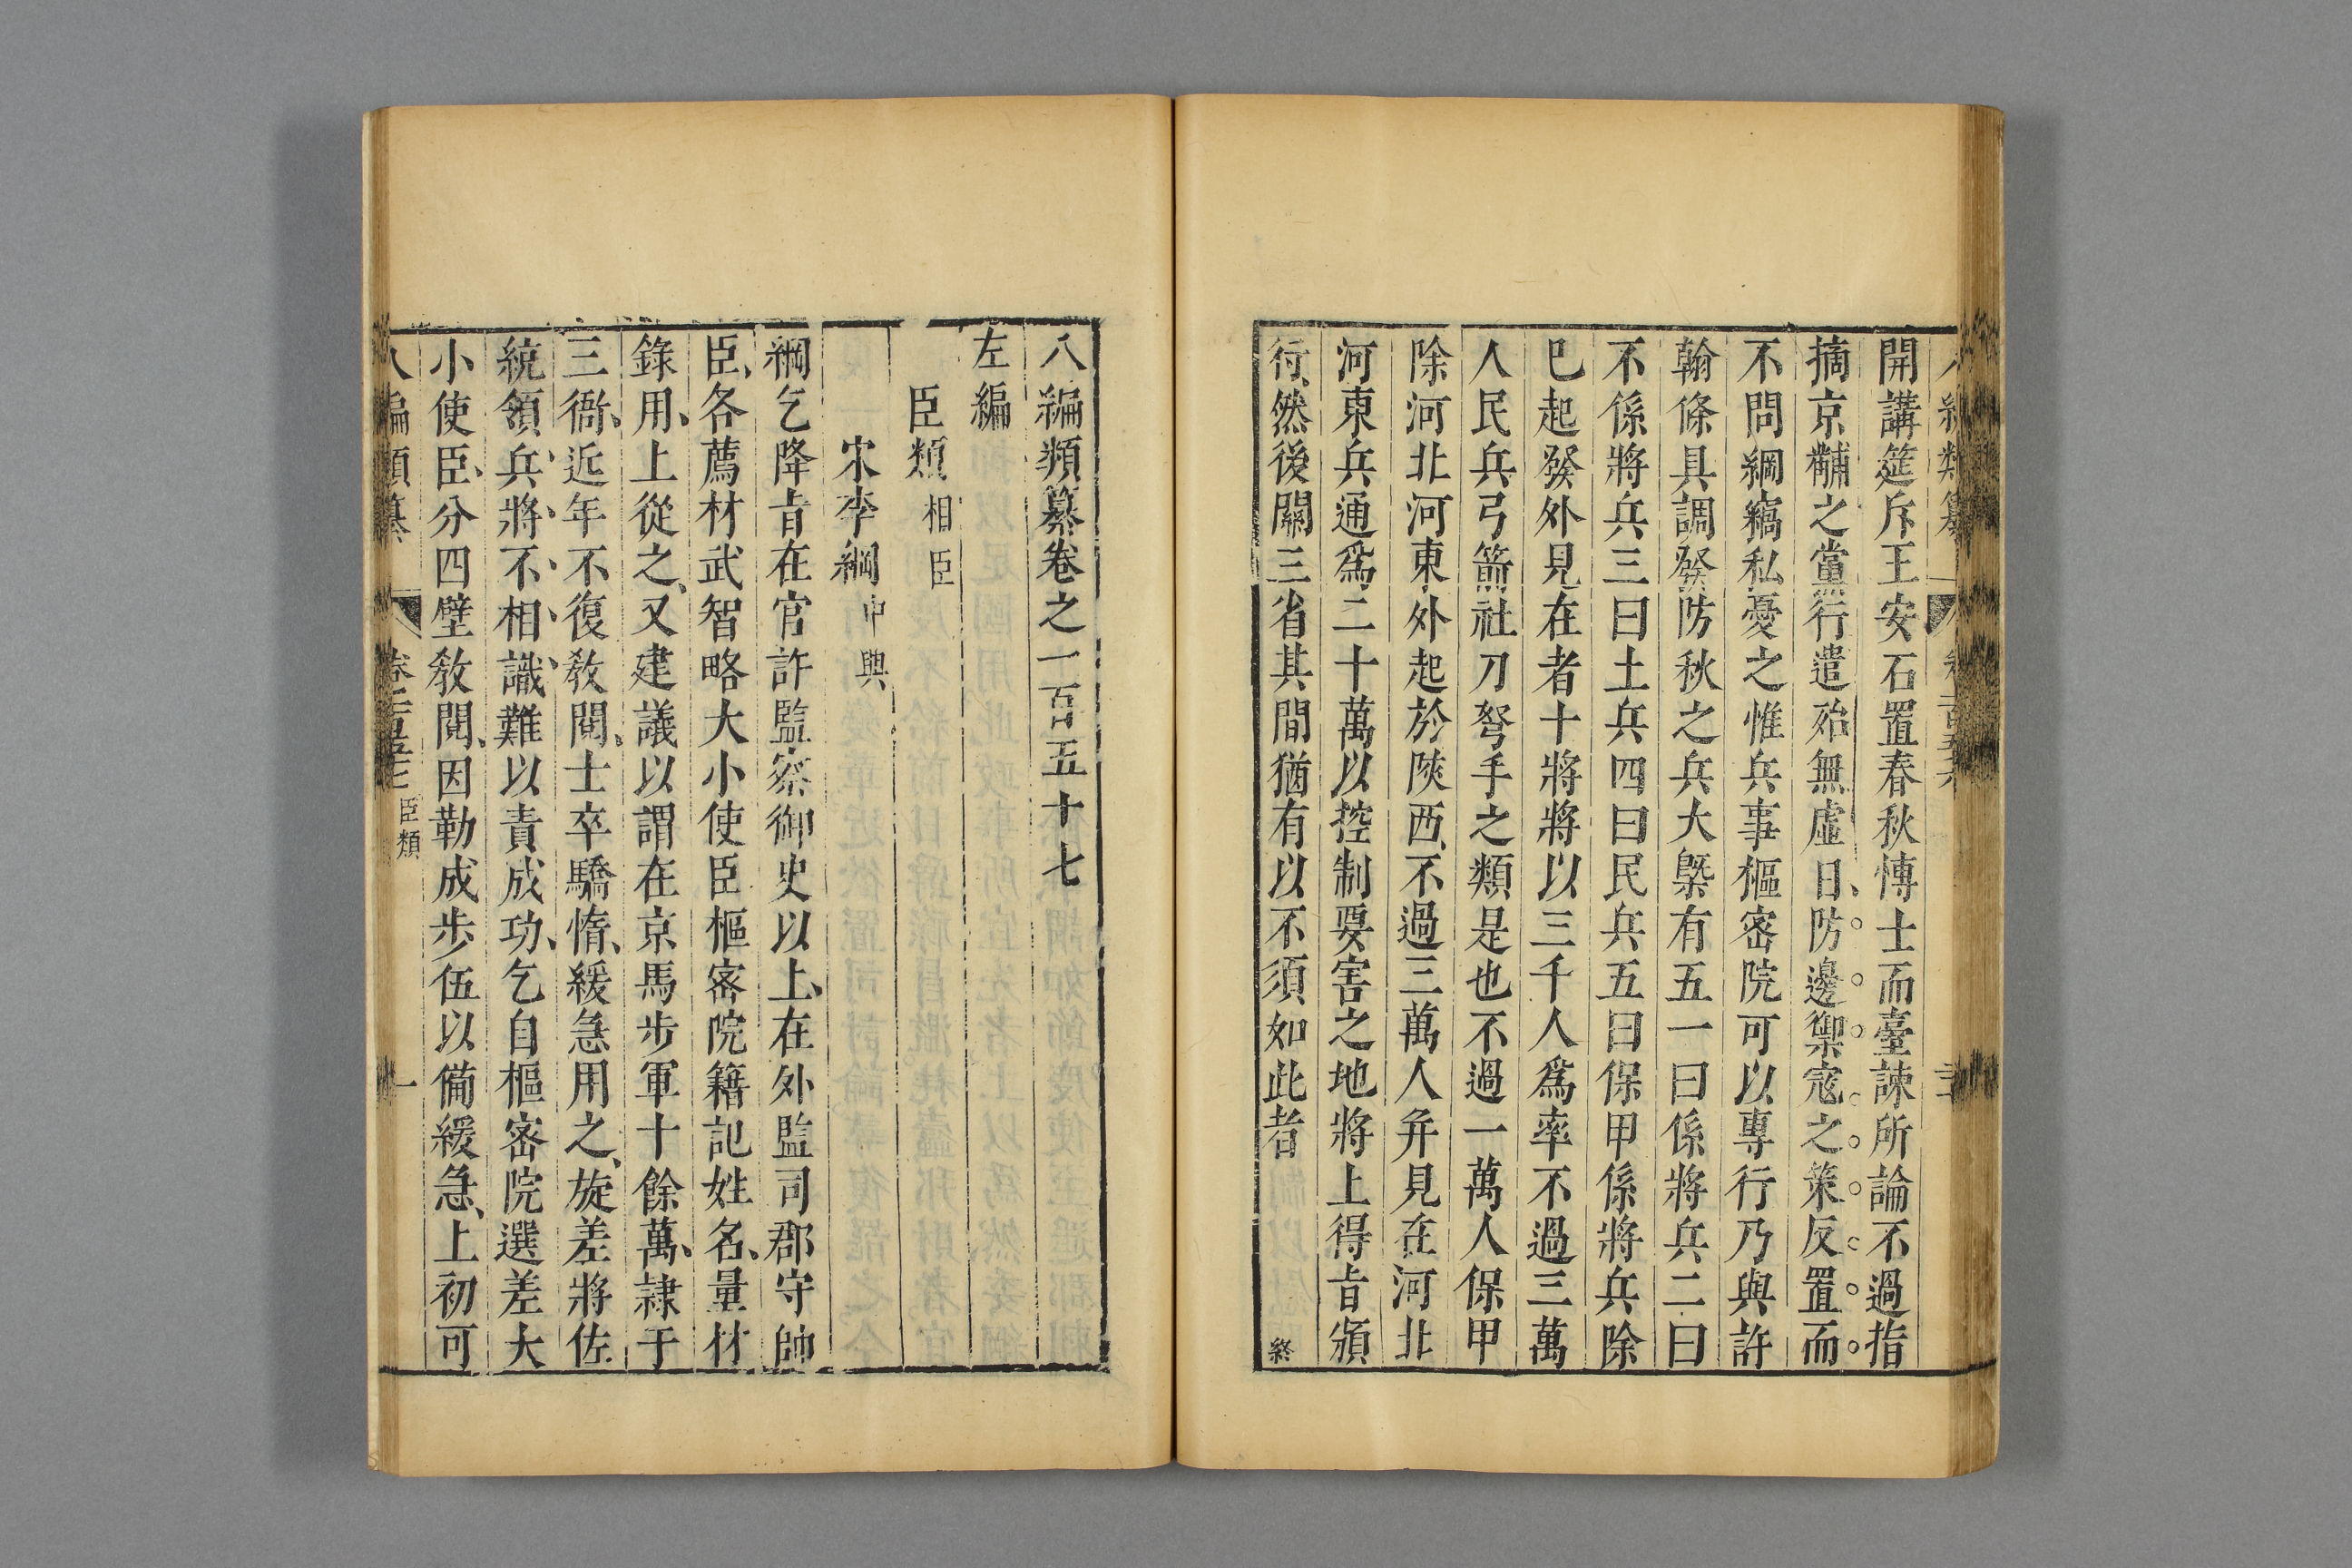 開講筵斥王安石置春秋博士而臺諫所論不過指
摘京黼之黨行遣殆無虛日防邊禦寇之策反置而
不問綱竊私憂之惟兵事樞密院可以專行乃與許
翰條具調發防秋之兵大槩有五一曰係將兵二曰
不係將兵三曰土兵四曰民兵五曰保甲係將兵除
已起發外見在者十將將以三千人爲率不過三萬
人民兵弓箭社刀弩手之類是也不過一萬人保甲
除河北河東外起於陝西不過三萬人弁見在河北
河東兵通爲二十萬以控制要害之地將上得旨頒
行然後關三省其間猶有以不須如此者
終
八編類纂卷之一百五十七
左編
臣類 相臣
宋李綱 中興
綱乞降旨在官許監察御史以上在外監司郡守帥
臣各薦材武智略大小使臣樞密院籍記姓名量材
錄用上從之又建議以謂在京馬步軍十餘萬隷于
三衙近年不復敎閱士卒驕惰緩急用之旋差將佐
統領兵將不相識難以責成功乞自樞密院選差大
小使臣分四壁敎閱因勒成步伍以備緩急上初可
八編類纂 卷一百五十七 臣類 一